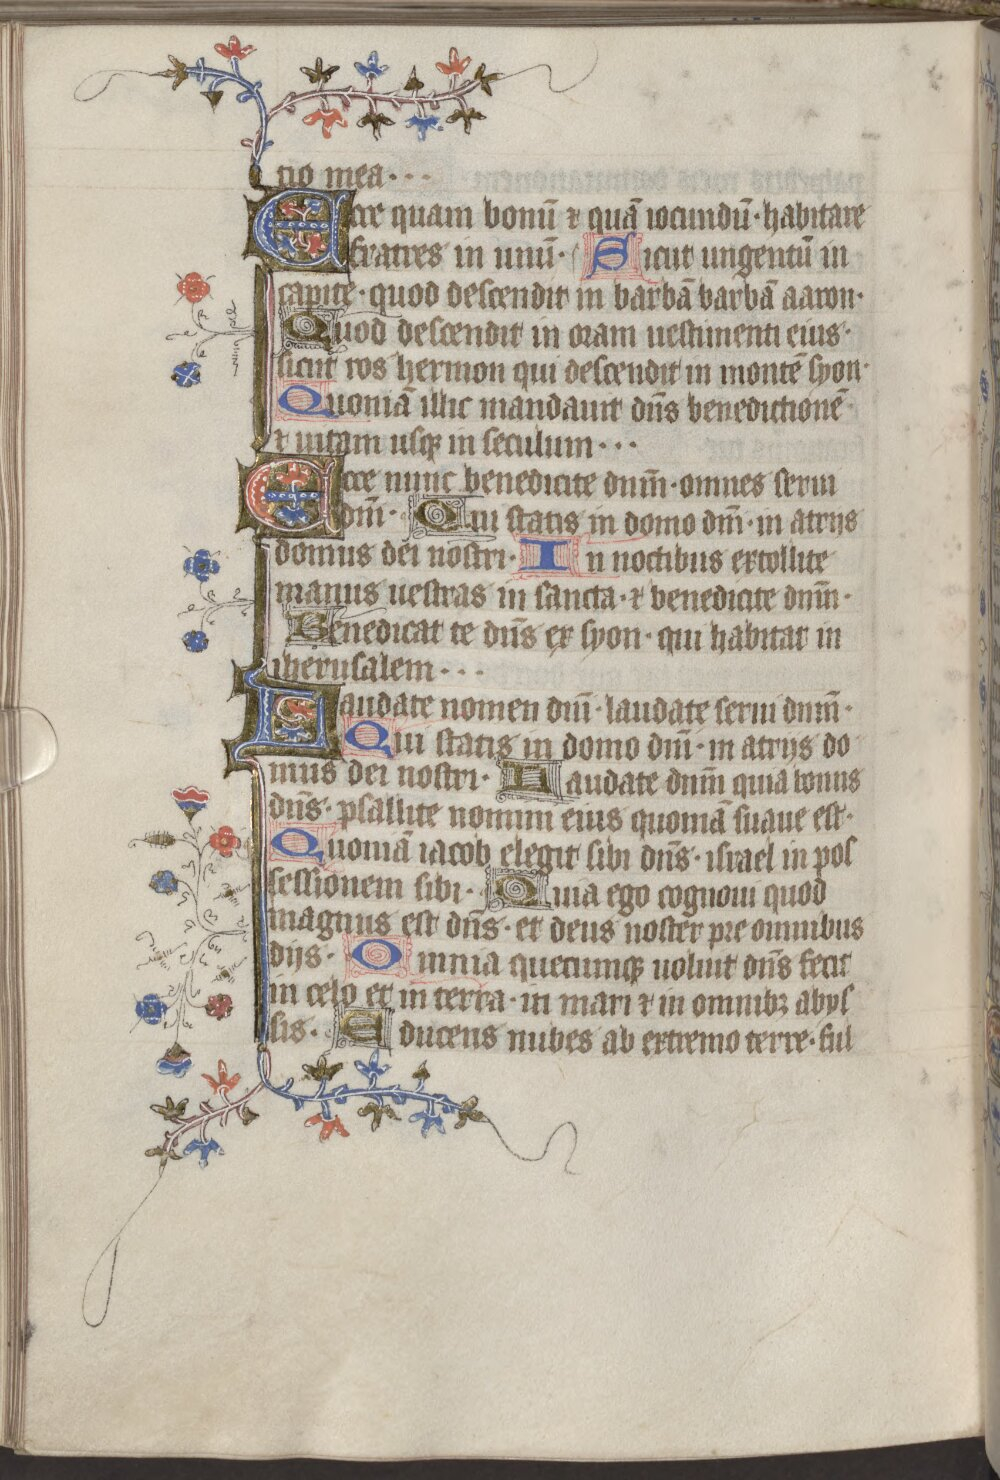 tio mea···
Ecce quam bonū ⁊ quā iocundū·habitare
fratres in unū· Sicut ungentū in
capite·quod descendit in barbā barbā aaron·
Quod descendit in oram uestimenti eius·
sicut ros hermon qui descendit in montē syon·
Quoniā illic mandauit dn̄s benedictionē·
⁊ uitam usqꝫ in seculum···
Ecce nunc benedicite dnm̄·omnes serui
dm̄i· Qui statis in domo dm̄i·in atrijs
domus dei nostri· In noctibus extollite
manus uestras in sancta·⁊ benedicite dnm̄·
Benedicat te dn̄s ex syon·qui habitat in
iherusalem···
Laudate nomen dm̄i·laudate serui dnm̄·
Qui statis in domo dm̄i·in atrijs do
mus dei nostri· Laudate dnm̄ quia bonus
dn̄s·psallite nomini eius quoniā suaue est·
Quoniā iacob elegit sibi dn̄s·israel in pos
sessionem sibi· Quia ego cognoui quod
magnus est dn̄s·et deus noster pre omnibus
dijs· Omnia quecumqꝫ uoluit dn̄s fecit
in celo et in terra·in mari ⁊ in omnibꝫ abys
sis· Educens nubes ab extremo terre·ful